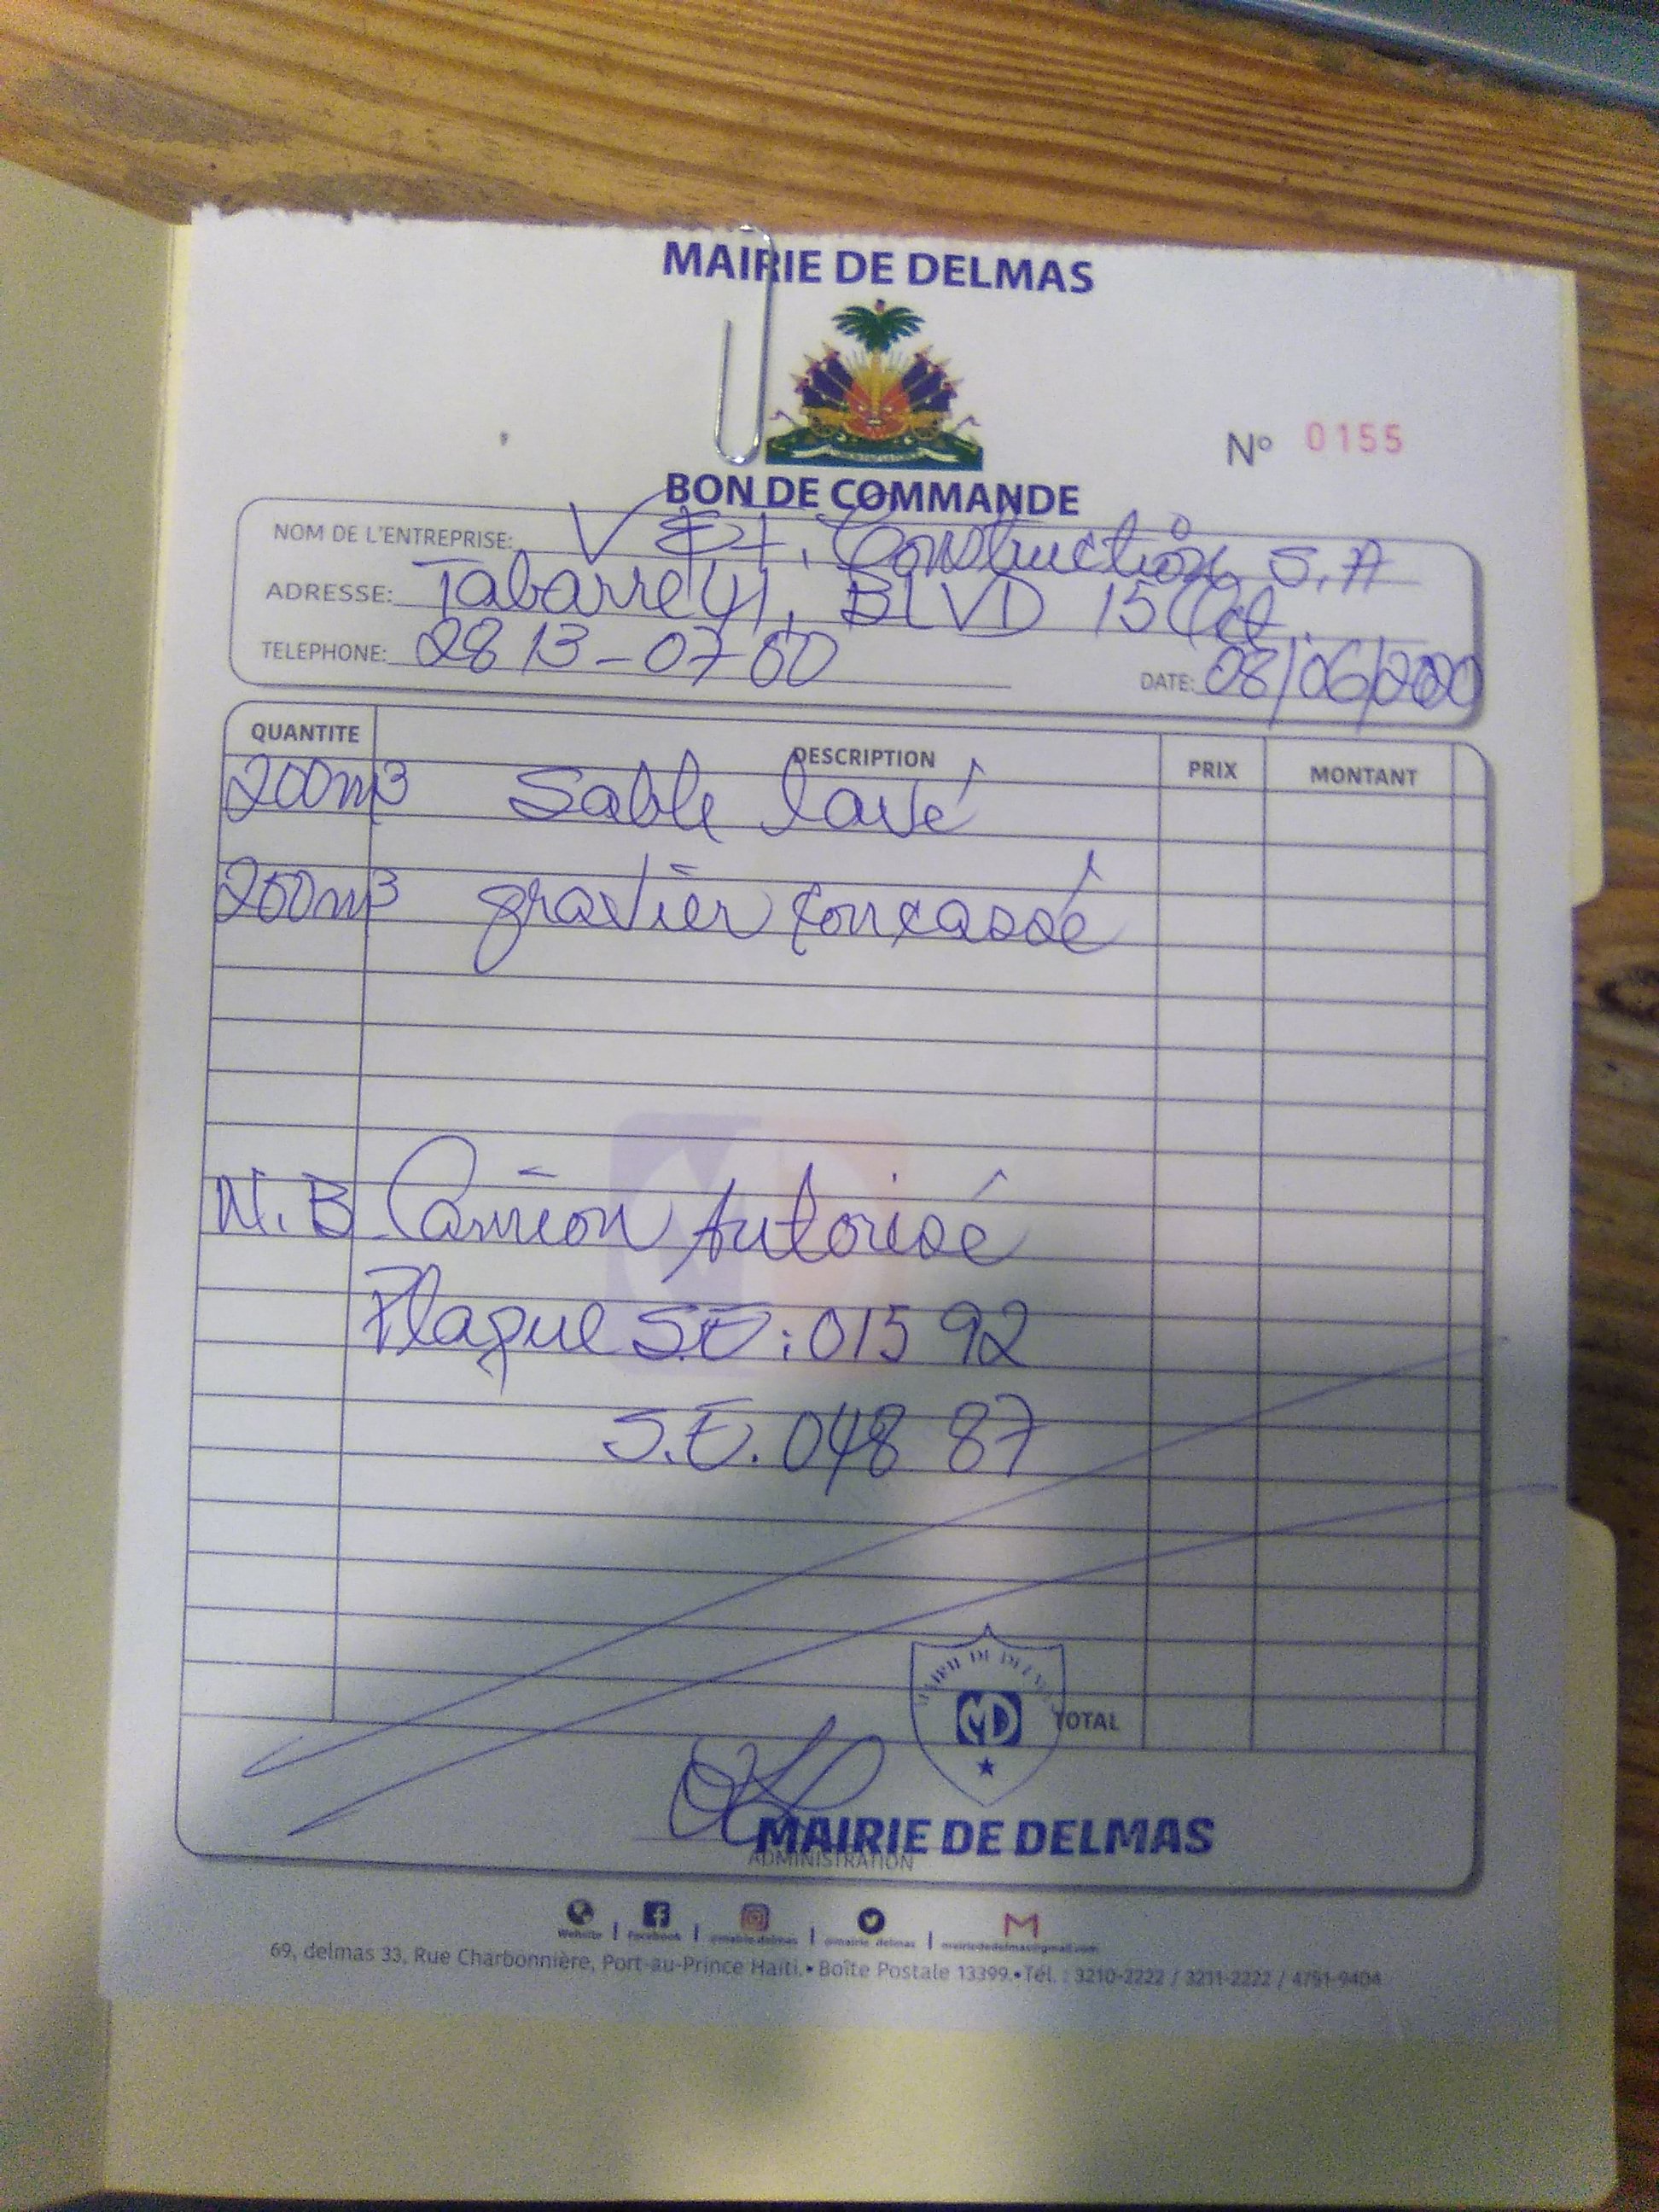 MAIRIE DE DELMAS
Nº 0155
BON DE COMMANDE
NOM DE L'ENTREPRISE: V Construction S.A
ADRESSE: Tabarre 41, BLVD 15 Oct.
TELEPHONE: 2813-0760 DATE: 08/06/2020
QUANTITE DESCRIPTION PRIX MONTANT
200m3 Sable lavé
200m3 gravier concassé
N.B Camion Autorisé
Plaque S.E: 015 92
S.E. 048 87
MAIRIE DE DELMAS
MD
TOTAL
MAIRIE DE DELMAS
ADMINISTRATION
Website | Facebook | @mairie.delmas | @mairie_delmas | mairiededelmas@gmail.com
69, delmas 33, Rue Charbonnière, Port-au-Prince Haïti.• Boîte Postale 13399.•Tél. : 3210-2222 / 3211-2222 / 4791-9404